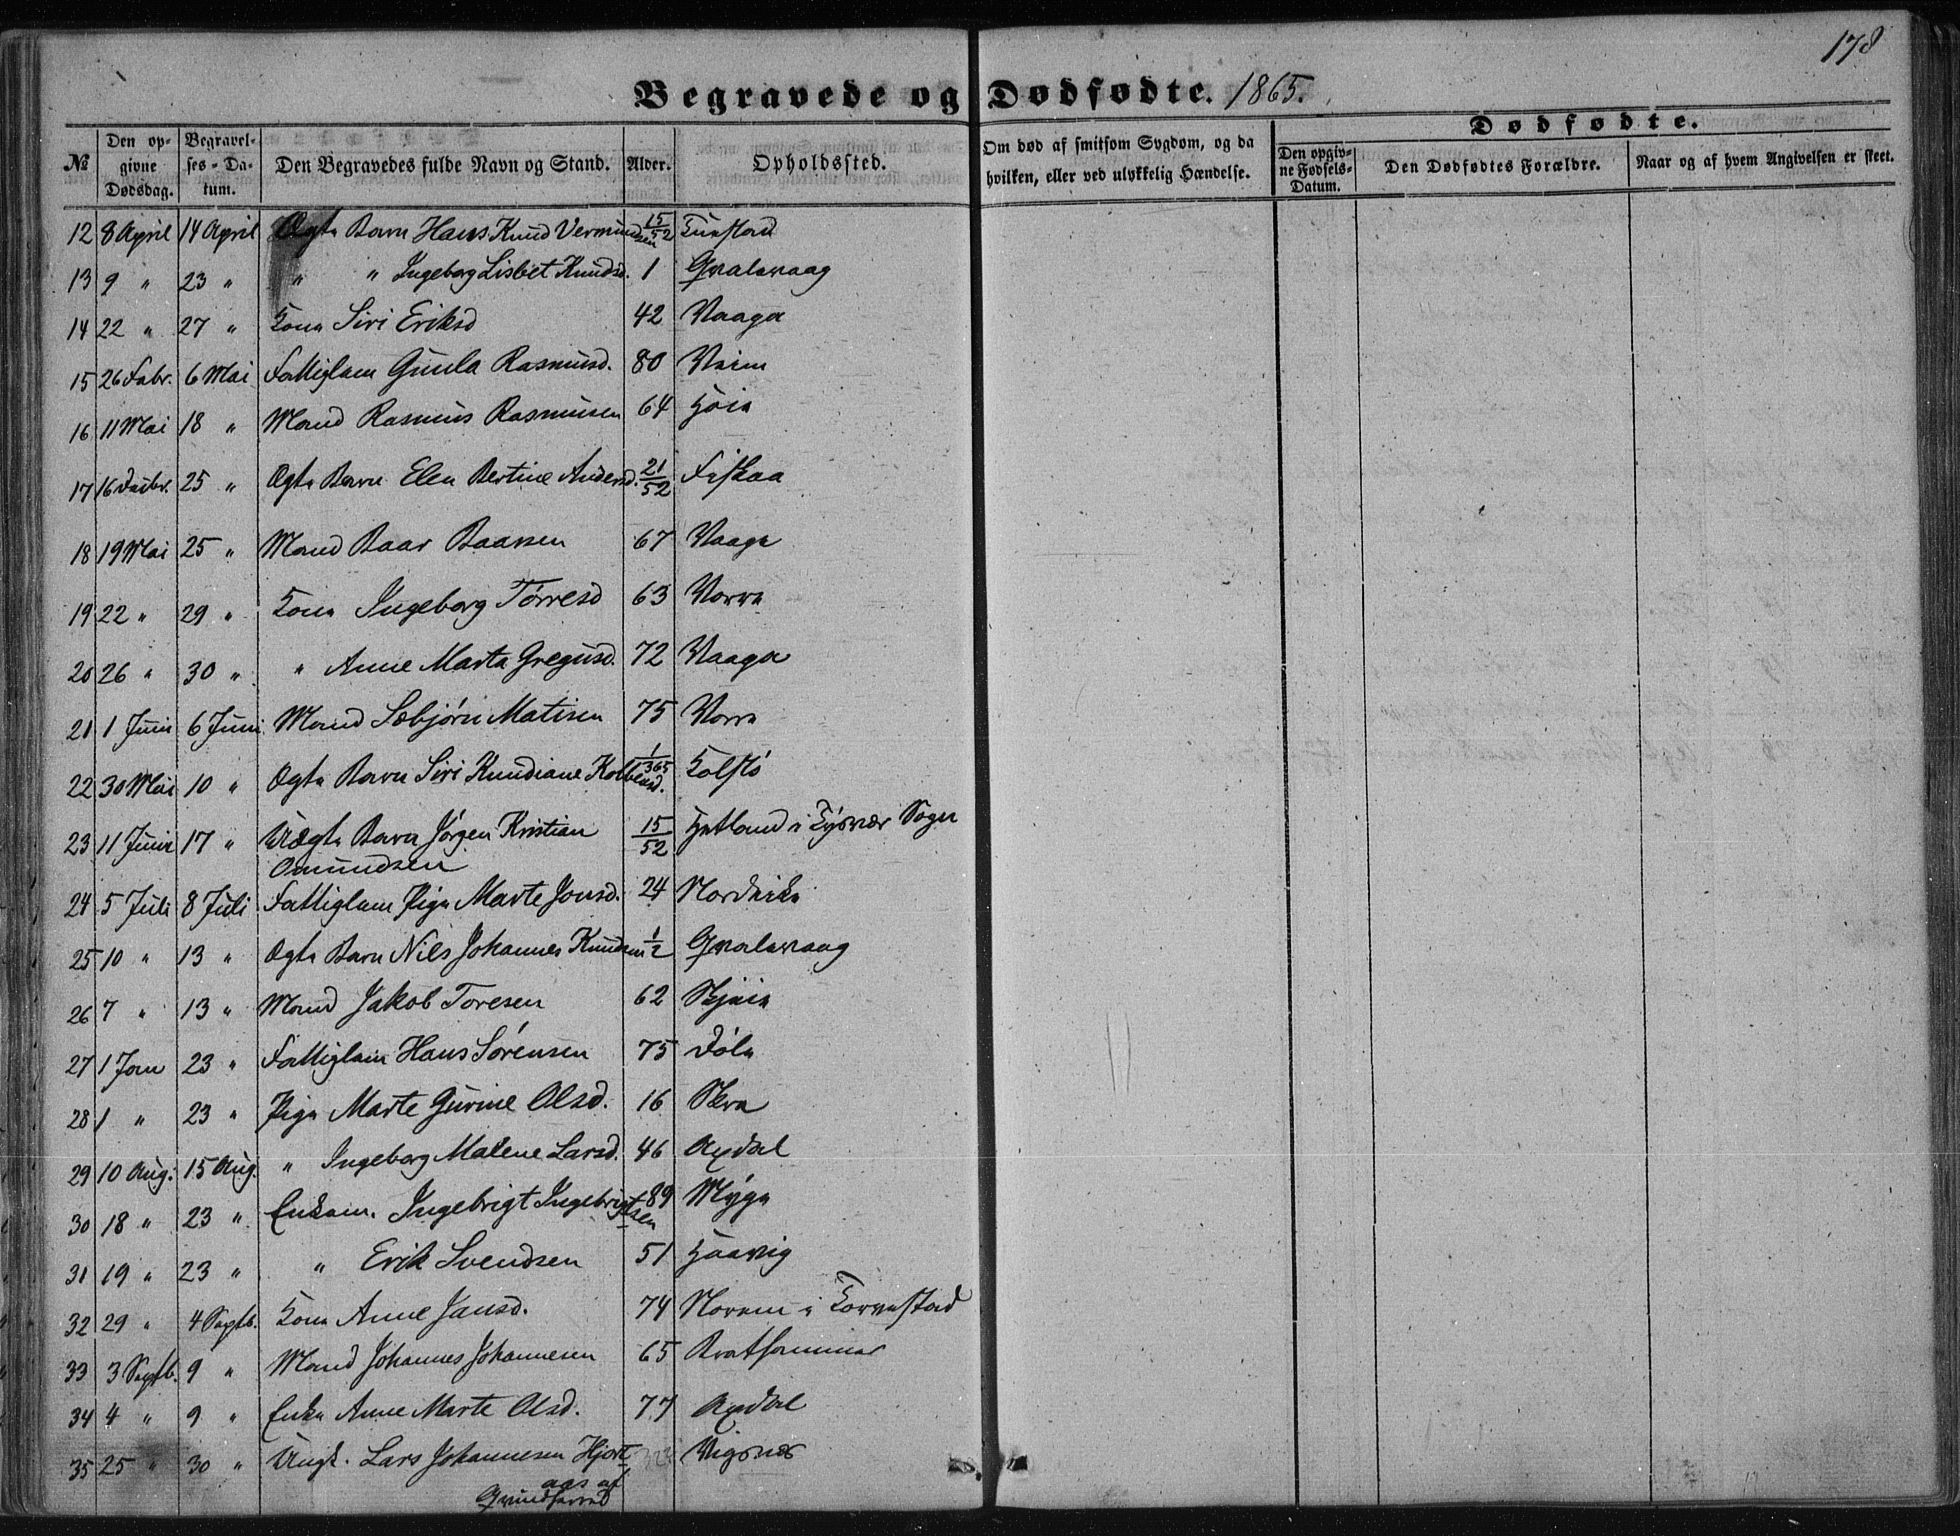 178
Begravede og Dødfødte. 1865.
Dødfødte.
№
Den opgivne Dødsdag.
Begravelses-Datum.
Den Begravedes fulde Navn og Stand.
Alder.
Opholdssted.
Om død af smitsom Sygdom, og da hvilken, eller ved ulykkelig Hændelse.
Den opgivne Fødsels-Datum.
Den Dødfødtes Forældre.
Naar og af hvem Angivelsen er skeet.
12 8 April 14 April Ægte Barn Hans Knud Vermundsen 15/52 Tuastad
13 9 " 23 " " " Ingeborg Lisbet Knudsd. 1 Qvalavaag
14 22 " 27 " Kone Siri Eriksd 42 Vaaga
15 26 Febr. 6 Mai Fattiglem Gunla Rasmusd. 80 Veim
16 11 Mai 18 " Mand Rasmus Rasmusen 64 Høie
17 16 25 " Ægte Barn Elen Bertine Andersd. 21/52 Fiskaa
18 19 Mai 25 " Mand Baar Baarsen 67 Vaage
19 22 " 29 " Kone Ingeborg Tørresd 63 Vorre
20 26 " 30 " " Anne Marta Gregusd. 72 Vaaga
21 1 Juni 6 Juni Mand Sæbjørn Matisen 75 Vorre
22 30 Mai 10 " Ægte Barn Siri Knudiane Kolbensd. 1/365 Kolstø
23 11 Juni 17 " Uægte Barn Jørgen Kristian 15/52 Hetland i Tysvær Sogn
Omundsen
24 5 Juli 8 Juli Fattiglem Pige Marte Jonsd. 24 Nordvike
25 10 " 13 " Ægte Barn Nils Johannes Knudsen 1/2 Qvalavaag
26 7 " 13 " Mand Jakob Toresen 62
27 1 Jan 23 " Fattiglem Hans Sørensen 75 Døle
28 1 " 23 " Pige Marte Gurine Olsd. 16 Skre
29 10 Aug. 15 Aug. " Ingeborg Malene Larsd. 46 Axdal
30 18 " 23 " Enkem. Ingebrigt Ingebrigtsen 89 Myge
31 19 " 23 " " Erik Svendsen 51 Haavig
32 29 " 4 Septb. Kone Anne Jansd. 74 Norem i Torvestad
33 3 Septb. 9 " Mand Johannes Johannesen 65 Brathammer
34 4 " 9 " Enke Anne Marte Olsd. 77 Axdal
35 25 " 30 " Ungk. Lars Johannesen Hjort- Vigsnæs
aas af